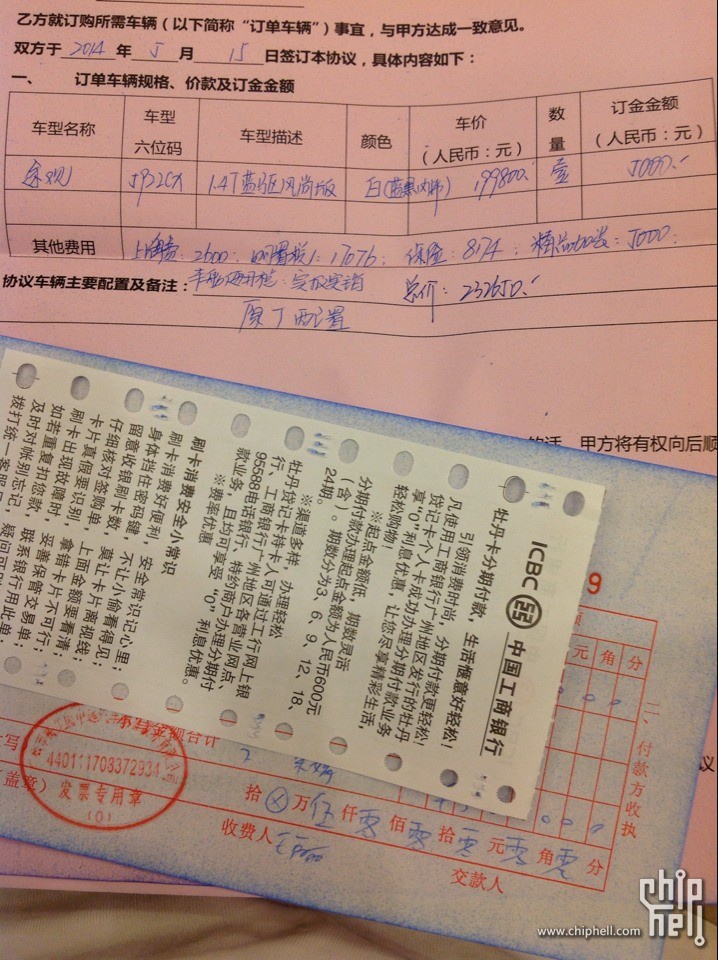 乙方就订购所需车辆（以下简称“订单车辆”）事宜，与甲方达成一致意见。
双方于 2014 年 5 月 15 日签订本协议，具体内容如下：
一、 订单车辆规格、价款及订金金额
车型名称 车型六位码 车型描述 颜色 车价（人民币：元） 数量 订金金额（人民币：元）
1.4T蓝驱风尚版 白 199800. 壹 5000.
其他费用 上牌费：2600 购置税：17076. 保险：8174 精品加装：5000.
协议车辆主要配置及备注： 总价：232650.
原厂配置
的话，甲方将有权向后顺
ICBC 中国工商银行
牡丹卡分期付款，生活惬意好轻松！
引领消费时尚，分期付款更轻松！
凡使用工商银行广州地区发行的牡丹
贷记卡个人卡成功办理分期付款业务
享“0”利息优惠，让您尽享精彩生活，
轻松购物！
※起点金额低，期数灵活
分期付款办理起点金额为人民币600元
（含）。期数分为3、6、9、12、18、
24期。
※渠道多样，办理轻松
牡丹贷记卡持卡人可通过工行网上银
行、工商银行广州地区各营业网点、
95588电话银行、特约商户办理分期付
款业务，且均可享受“0”利息优惠。
※费率优惠
刷卡消费安全小常识
刷卡消费好便利，安全常识记心里；
身体挡住密码键，不让小偷看得见；
留意收银刷卡数，莫让卡片离视线；
仔细核对签购单，上面金额要看清；
卡片真假要识别，拿错卡片不可行；
刷卡出现故障时，妥善保管交易单；
如若重复扣您款，联系银行用此单；
及时对帐别忘记，疑问可
拨打统一客服
9
元 角 分
二、付款方收执
金额合计
拾 ⊗ 万 伍 仟 零 佰 零 拾 零 元 零 角 零 分
（盖章）
收费人
交款人
440111708372934
发票专用章
(0)
议
chip hell
www.chiphell.com